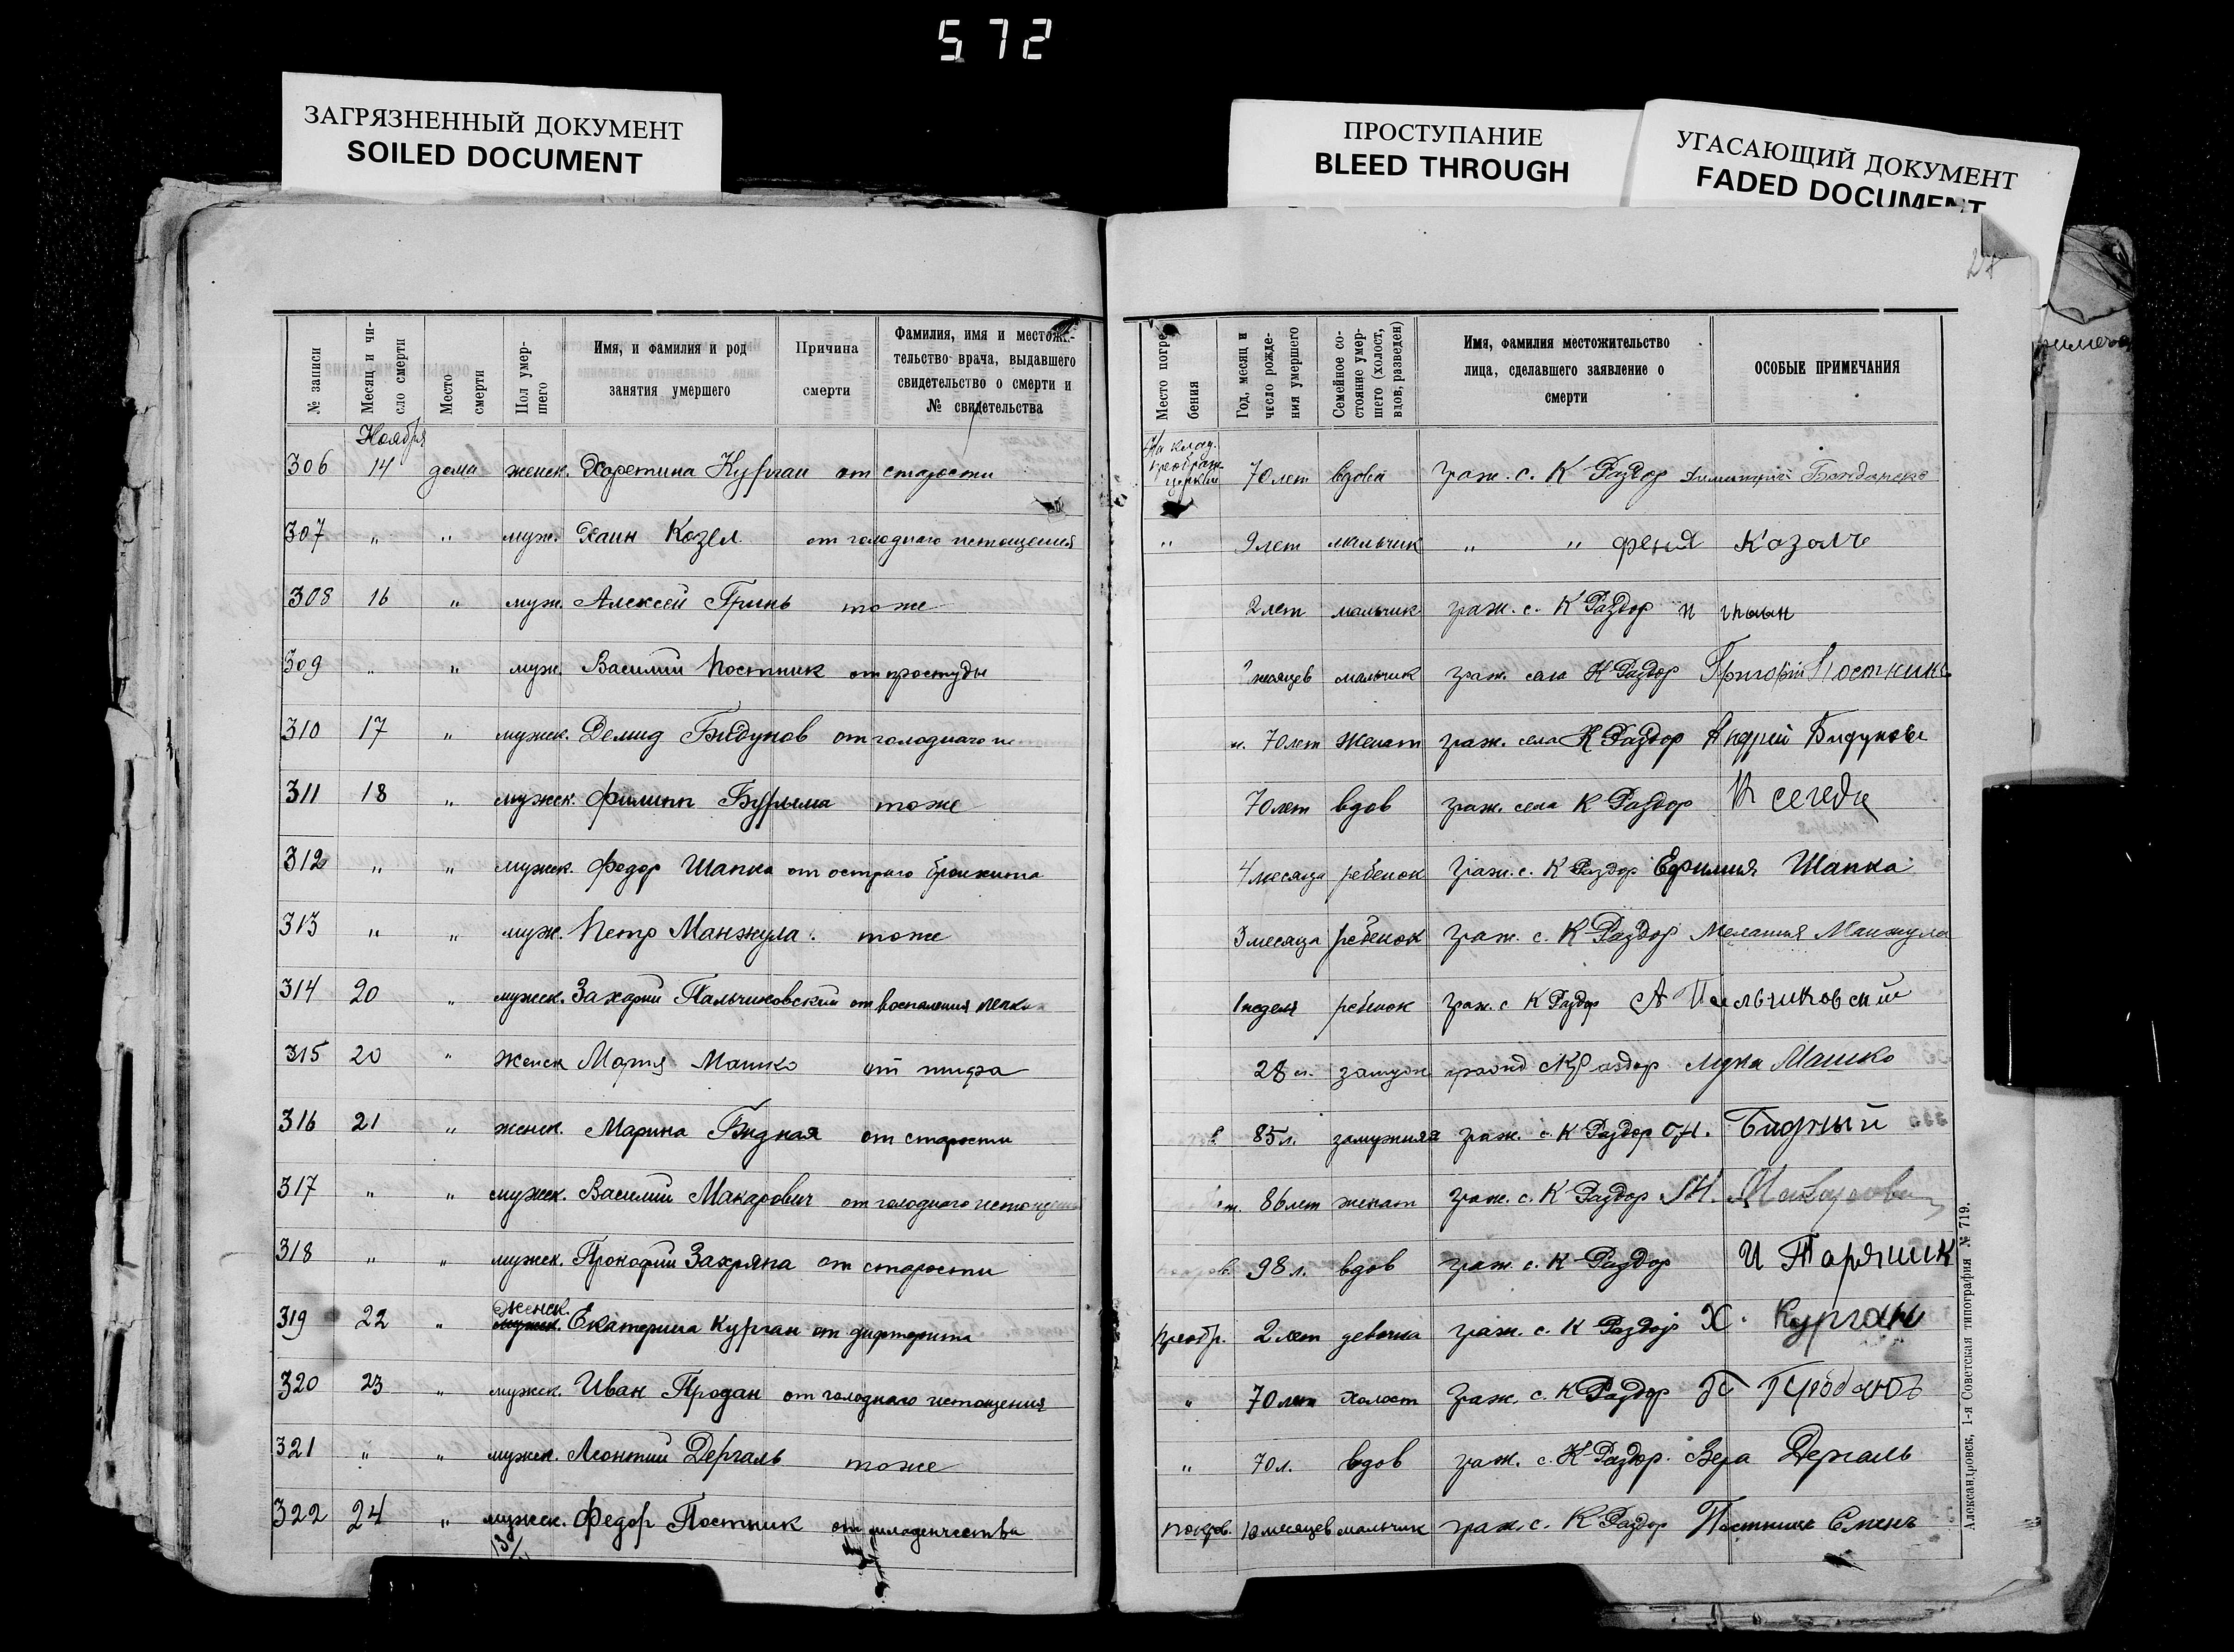 572
ЗАГРЯЗНЕННЫЙ ДОКУМЕНТ
SOILED DOCUMENT
ПРОСТУПАНИЕ
BLEED THROUGH
УГАСАЮЩИЙ ДОКУМЕНТ
FADED DOCUMENT
№ записи
Месяц и чи-
сло смерти
Место
смерти
Пол умер-
шего
Имя, и фамилия и род
занятия умершего
Причина
смерти
Фамилия, имя и местож.-
тельство врача, выдавшего
свидетельство о смерти и
№ свидетельства
Место погре-
бения
Год, месяц и
число рожде-
ния умершего
Семейное со-
стояние умер-
шего (холост,
вдов, разведен)
Имя, фамилия местожительство
лица, сделавшего заявление о
смерти
ОСОБЫЕ ПРИМЕЧАНИЯ
Ноября
306 14 дома женск. Харетина Курган от старости
На клад.
преображ.
церкви 70 лет вдова граж. с. К Раздор Димитрий
307 " " муж. Хаин Козел от голоднаго истощения
" 9 лет мальчик " " феня Козолъ
308 16 " муж. Алексей Гринь тоже
2 лет мальчик граж. с. К Раздор
309 " " муж. Василий Постник от простуды
месяцев мальчик граж. села К Раздор Григорій Постникъ
310 17 " мужск. Демид Бидунов от голоднаго
70 лет женат граж. села К Раздор Андрей Бидуновъ
311 18 " мужск. Филипп Бурыма тоже
70 лет вдов граж. села К Раздор
312 " " мужск. Федор Шапка от остраго бронхита
4 месяца ребенок граж. с. К Раздор Ефимия Шапка
313 " " муж. Петр Манжула. тоже
3 месяца ребенок граж. с. К Раздор Мелания Манжула
314 20 " мужск. Захарий Пальчиковский от воспаления легких
1 неделя ребенок граж. с К Раздор А Пальчиковский
315 20 " женск Мария Машко от тифа
28 л. замуж К Раздор Лука Машко
316 21 " женск. Марина Бидная от старости
85 л. замужняя граж. с. К Раздор Бидный
317 " " мужск. Василий Макарович от голоднаго истощения
86 лет женат граж. с. К Раздор
318 " " мужск. Прокофий Захряпа от старости
98 л. вдов граж. с. К Раздор И Таряник
женск.
319 22 " мужск. Екатерина Курган от дифтерита
преобр. 2 лет девочка граж. с. К Раздор Х. Курган
320 23 " мужск. Иван Продан от голоднаго истощения
" 70 лет холост граж. с. К Раздор
321 " " мужск. Леонтий Дергаль тоже
" 70 л. вдов граж. с. К Раздор. Вера Дергаль
322 24 " мужск. Федор Постник от младенчества
покров. 10 месяцев мальчик граж. с. К Раздор Постник Семенъ
Александровск, 1-я Советская типография № 719.